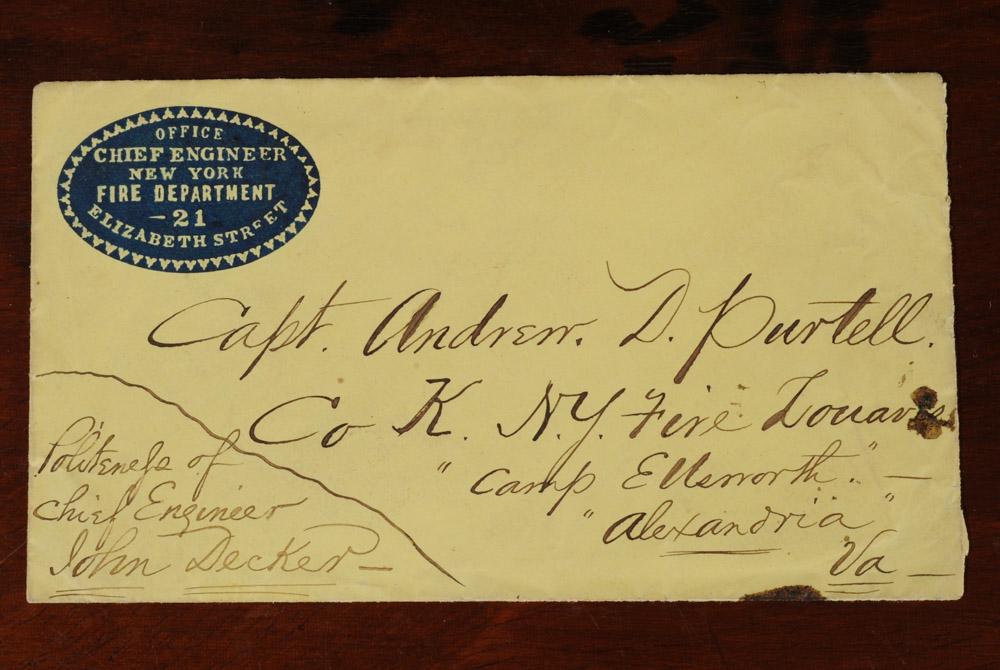 OFFICE
CHIEF ENGINEER
NEW YORK
FIRE DEPARTMENT
- 21
ELIZABETH STREET
Capt. Andrew. D. Purtell.
Co K. N.Y. Fire Zouaves
" Camp Ellsworth." —
"Alexandria"
Va —
Politeness of
Chief Engineer
John Decker —